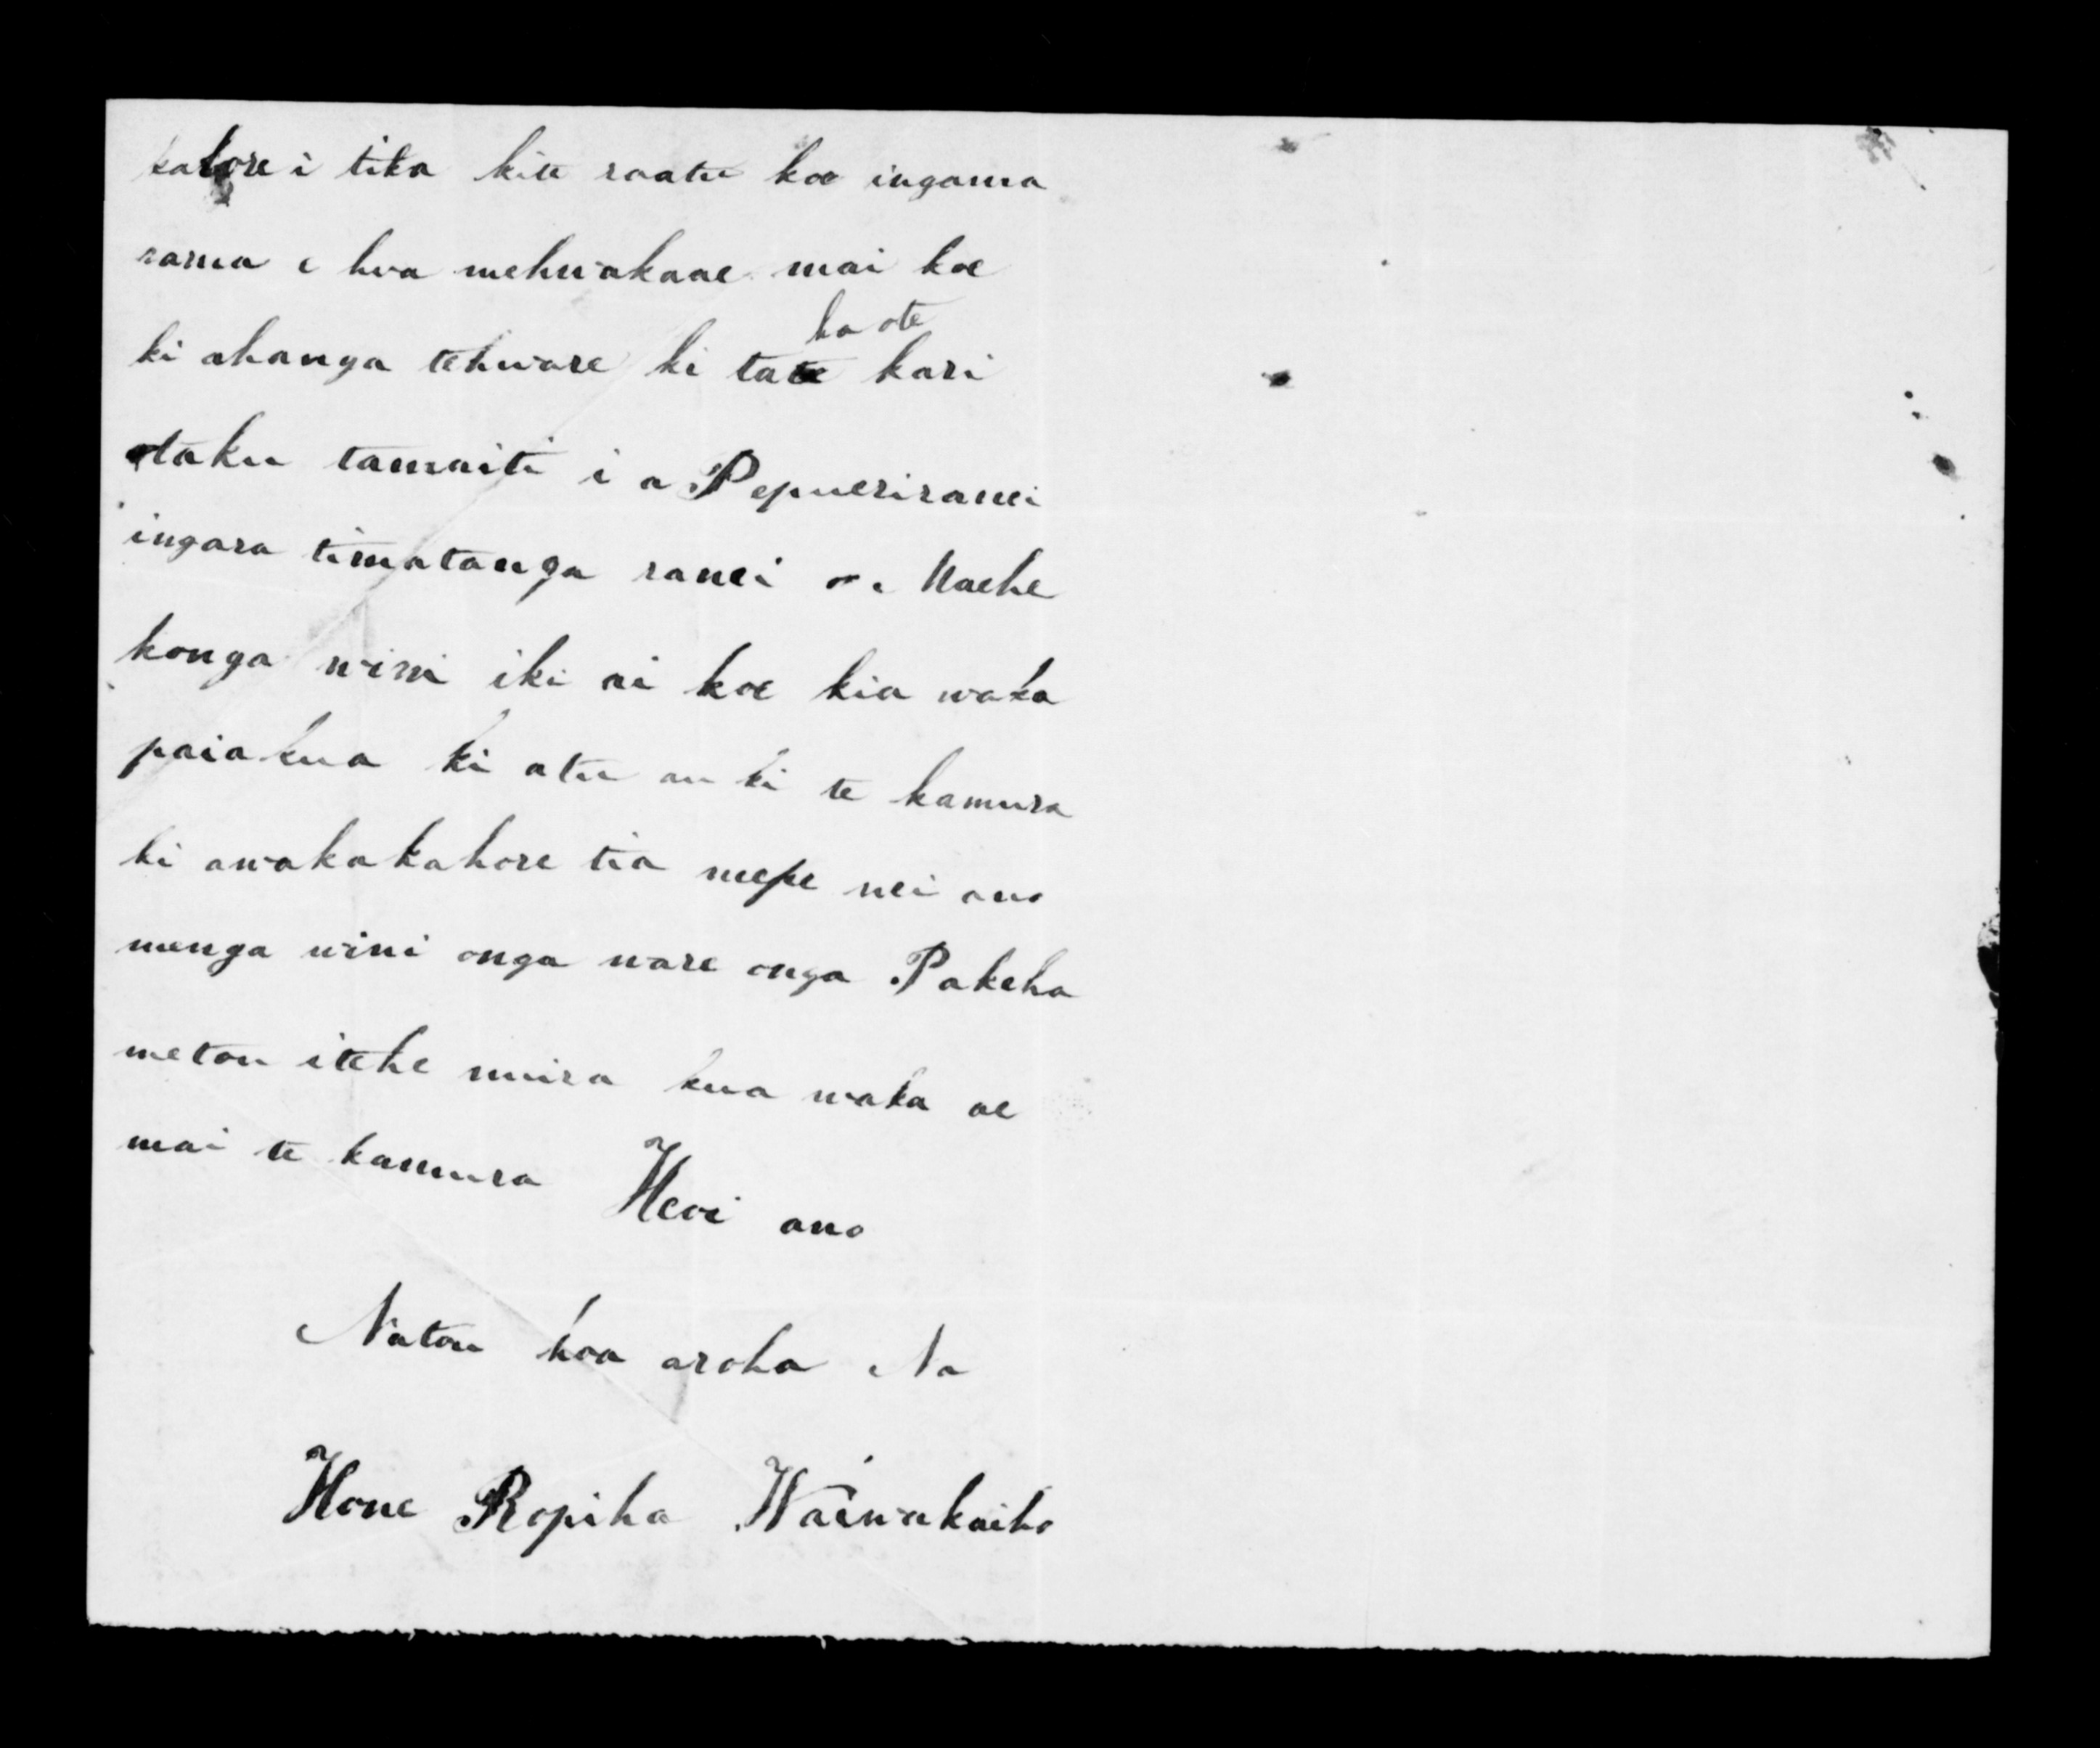 kahore i tika kite raatu koe ingama
rama e hoa mehwakaae mai koe
ki ahanga tehware ki ta ka ote kari
otaku tamaiti i a Pepueriranei
ingara timatanga ranei o Maehe
konga wini iki ai koe kia waka
paia kua ki atu au ki te kamura
ki awakakahore tia mepe nei ano
menga wini onga ware onga Pakeha
metou itehe nuira kua waka ae
mai te kamura Heoi ano
Natou hoa aroha Na
Hone Ropiha Waiwakaiho